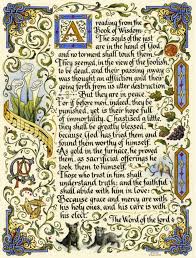 A reading from the
Book of Wisdom.
The souls of the just
are in the hand of God,
and no torment shall touch them.
They seemed, in the view of the foolish
to be dead; and their passing away
was thought an affliction and their
going forth from us utter destruction.
But they are in peace.
For if before men, indeed, they be
punished, yet is their hope full
of immortality. Chastised a little,
they shall be greatly blessed,
because God has tried them and
found them worthy of himself.
As gold in the furnace, he proved
them, as sacrificial offerings he
took them to himself.
Those who trust in him shall
understand truth; and the faithful
shall abide with him in love:
Because grace and mercy are with
his holy ones, and his care is with
his elect.
The Word of the Lord